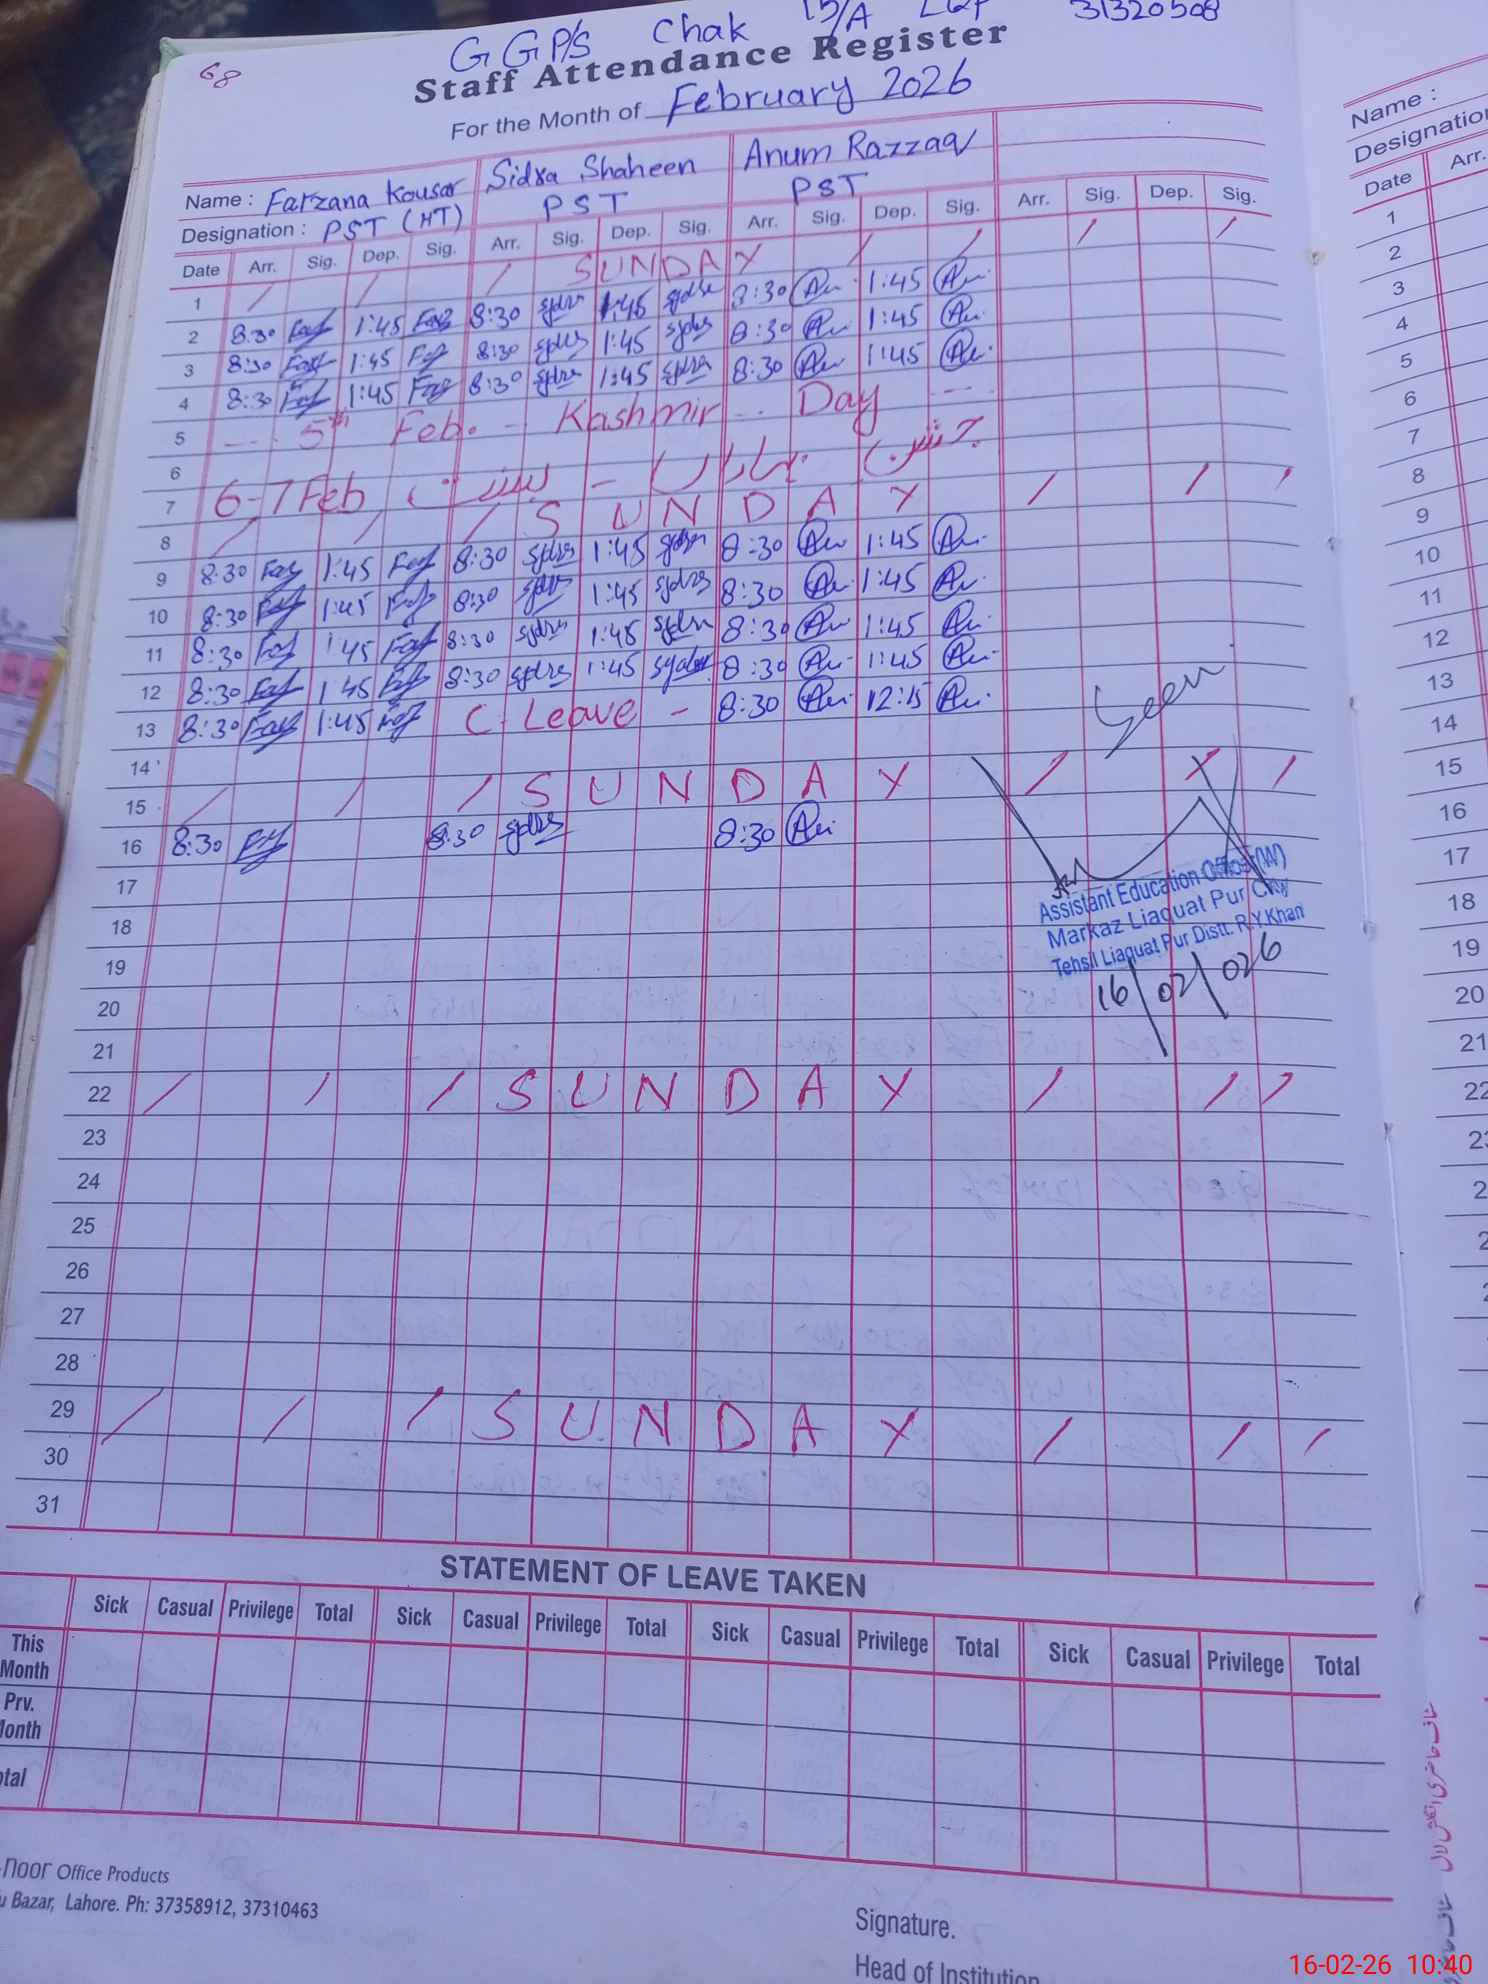 68
GGP/S Chak 15/A LQP 31320508
Staff Attendance Register
For the Month of February 2026
Name : Farzana Kousar Sidra Shaheen Anum Razzaq
Designation : PST (HT) PST PST
Date Arr. Sig. Dep. Sig. Arr. Sig. Dep. Sig. Arr. Sig. Dep. Sig. Arr. Sig. Dep. Sig.
1 / / / SUNDAY / / / /
2 8:30 1:45 8:30 1:45 8:30 1:45
3 8:30 1:45 8:30 1:45 8:30 1:45
4 8:30 1:45 8:30 1:45 8:30 1:45
5 5th Feb. - Kashmir Day
6
7 6-7 Feb جشن بہاراں - بسنت
8 / / / SUNDAY / / /
9 8:30 1:45 8:30 1:45 8:30 1:45
10 8:30 1:45 8:30 1:45 8:30 1:45
11 8:30 1:45 8:30 1:45 8:30 1:45
12 8:30 1:45 8:30 1:45 8:30 1:45
13 8:30 1:45 C. Leave - 8:30 12:15
Seen
14
15 / / / SUNDAY / /
16 8:30 8:30 8:30
17
Assistant Education Officer (W)
18
Markaz Liaquat Pur City
19
Tehsil Liaquat Pur Distt. R.Y.Khan
20
16/02/026
21
22 / / / SUNDAY / / /
23
24
25
26
27
28
29 / / / SUNDAY / / /
30
31
STATEMENT OF LEAVE TAKEN
Sick Casual Privilege Total Sick Casual Privilege Total Sick Casual Privilege Total Sick Casual Privilege Total
This Month
Prv.
-noor Office Products
Bazar, Lahore. Ph: 37358912, 37310463
Signature.
Head of Institution
Name :
Designatio
Date Arr.
1
2
3
4
5
6
7
8
9
10
11
12
13
14
15
16
17
18
19
20
21
22
16-02-26 10:40